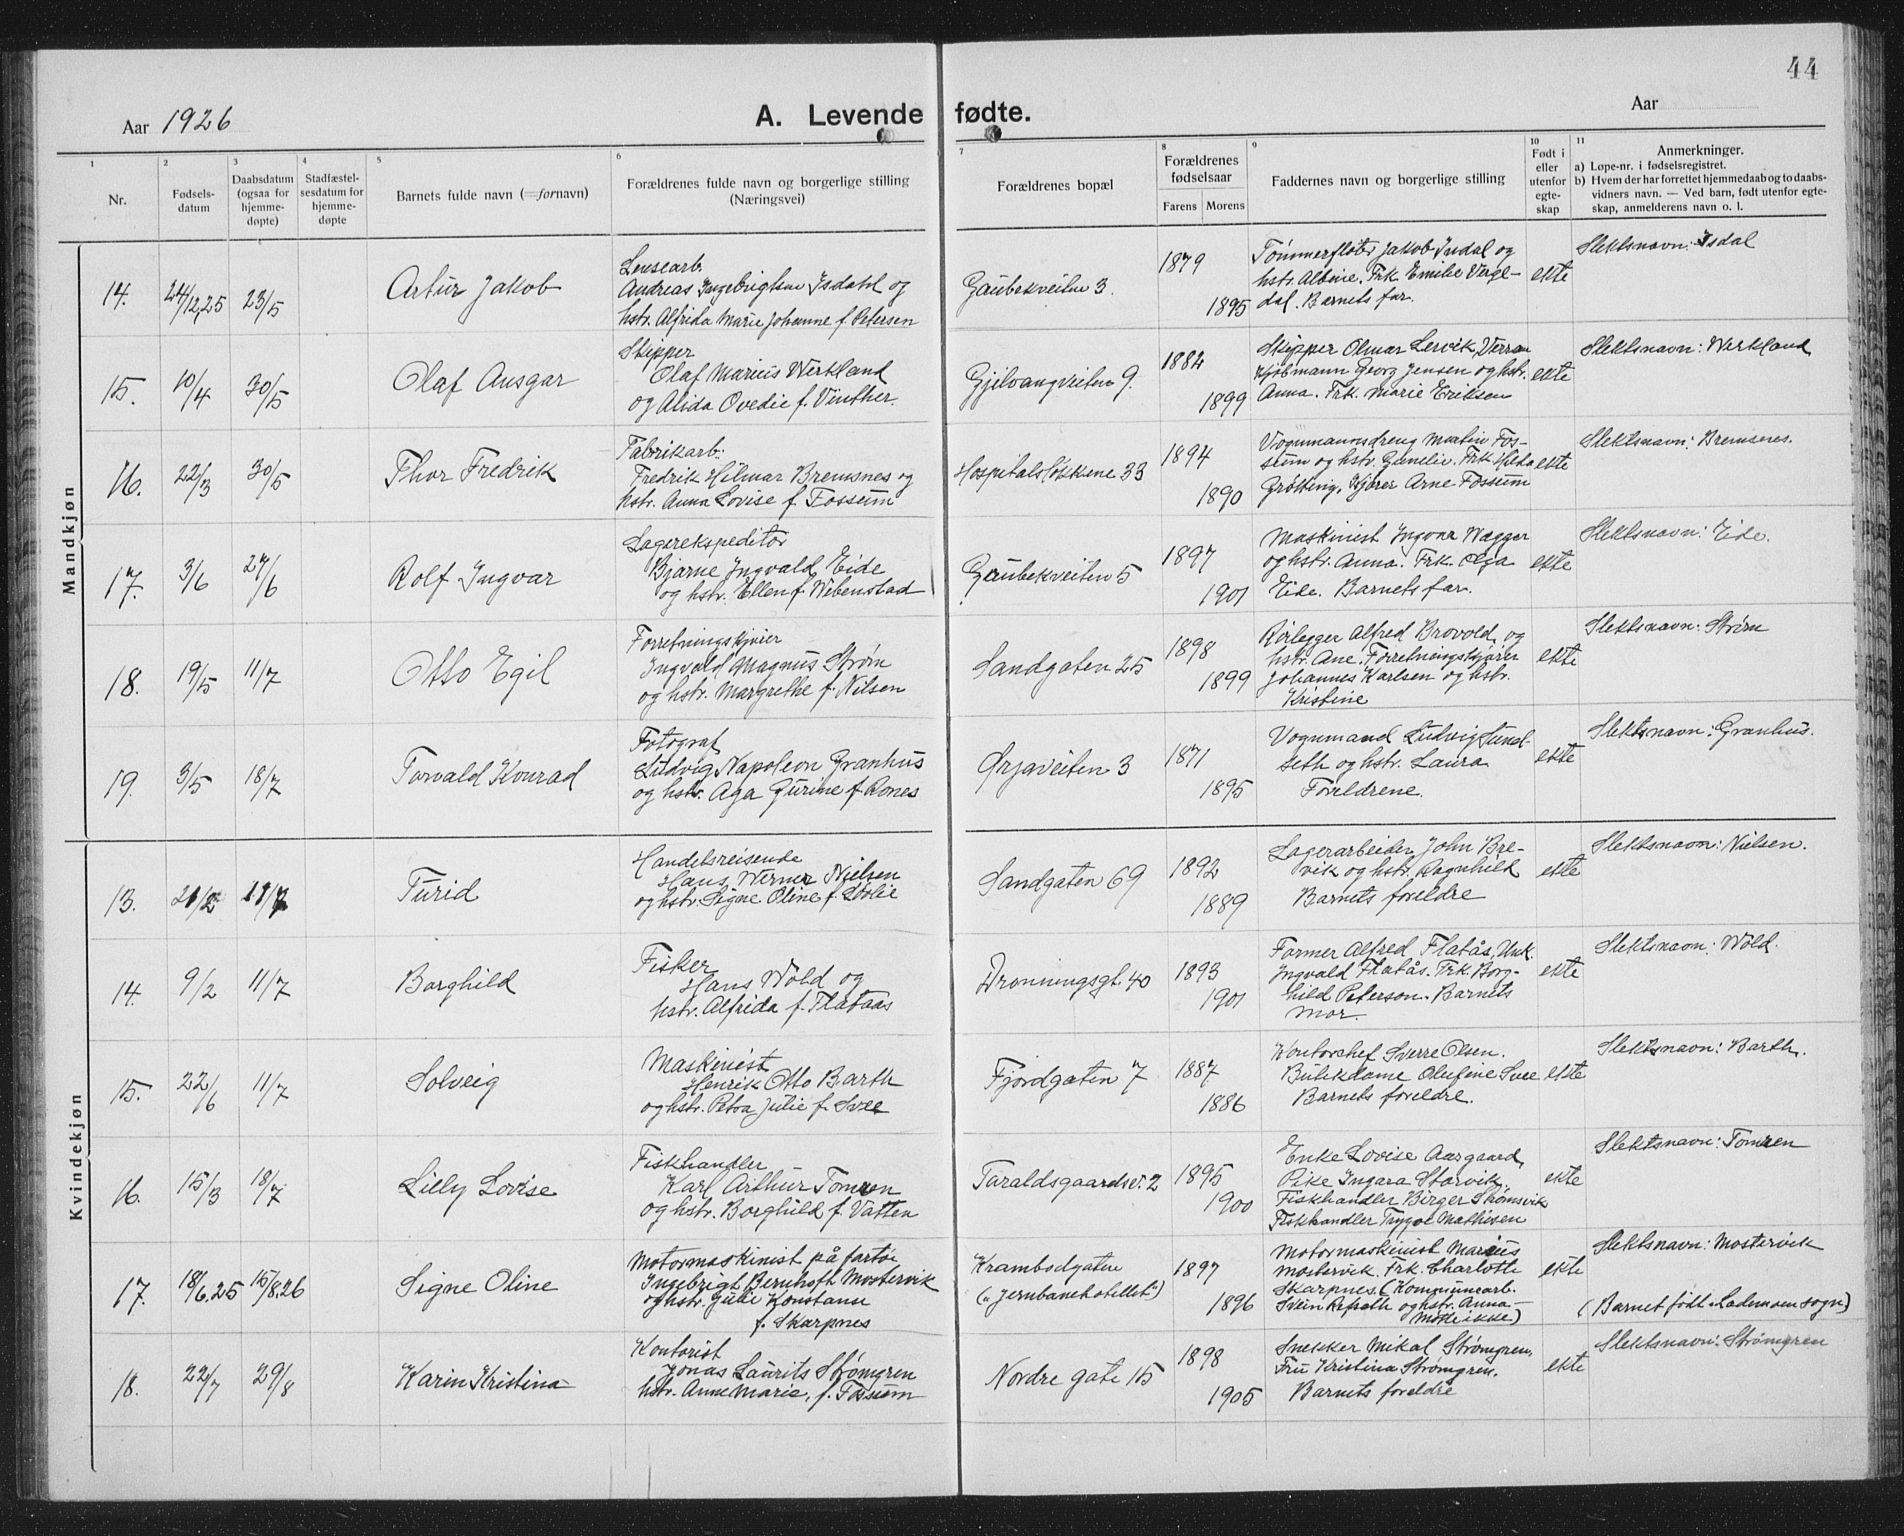 44
Aar 1926
A. Levende fødte.
Aar
1 2 3 4 5 6 7 8 9 10 11
Nr.
Fødsels-
datum
Daabsdatum
(ogsaa for
hjemme-
døpte)
Stadfæstel-
sesdatum for
hjemme-
døpte
Barnets fulde navn (=fornavn)
Forældrenes fulde navn og borgerlige stilling
(Næringsvei)
Forældrenes bopæl
Forældrenes
fødselsaar
Farens Morens
Faddernes navn og borgerlige stilling
Født i
eller
utenfor
egte-
skap
Anmerkninger.
a) Løpe-nr. i fødselsregistret.
b) Hvem der har forrettet hjemmedaab og to daabs-
vidners navn. — Ved barn, født utenfor egte-
skap, anmelderens navn o. l.
Mandkjøn
14. 24/12.25 23/5
Artur Jakob
Lensearb.
Andreas Ingebrigtsen Isdahl og
hstr. Alfrida Marie Johanne f. Petersen
Gaubekveiten 3.
1879
1895
Tømmerfløter Jakob Isdal og
hstr. Albine. Frk. Emilie
dal. Barnets far.
ekte
Slektsnavn: Isdal
15. 10/4 30/5
Olaf Ansgar
Skipper
Olaf Marius Werkland
og Alida Ovedie f. Vinther.
Gjelvangveiten 9.
1884
1899
Skipper Olmar Lervik, Verran
Kjøbmann Georg Jensen og hstr.
Anna. Frk. Marie Eriksen
ekte
Slektsnavn: Werkland
16. 22/3 30/5
Thor Fredrik
Fabrikarb.
Fredrik Hilmar Bremsnes og
hstr. Anna Lovise f. Fossum
Hospitalsløkkene 33
1894
1890
Vognmannsdreng Martin Fos-
sum og hstr. Gunelie. Frk. Hilda
Grøtting, Kjører Arne Fossum
ekte
Slektsnavn: Bremsnes.
17. 3/6 27/6
Rolf Ingvar
Lagerekspeditør
Bjarne Ingvald Eide
og hstr. Ellen f. Wibenstad
Gaubekveiten 5
1897
1901
Maskinist Ingvar Wagger
og hstr. Anna. Frk. Olga
Eide. Barnets far.
ekte
Slektsnavn: Eide.
18. 19/5 11/7
Otto Egil
Forretningskjører
Ingvald Magnus Strøm
og hstr. Margrethe f. Nilsen
Sandgaten 25
1898
1899
Rørlegger Alfred Brovold og
hstr. Ane. Forretningskjører
Johannes Karlsen og hstr.
Kristine
ekte
Slektsnavn: Strøm
19. 3/5 18/7
Torvald Konrad
Fotograf
Ludvig Napoleon Granhus
og hstr. Aga Gurine f. Rones
Ørjaveiten 3
1871
1895
Vognmand Ludvig Sund-
seth og hstr. Laura
Foreldrene.
ekte
Slektsnavn: Granhus.
Kvindekjøn
13. 21/2 11/7
Turid
Handelsreisende
Hans Werner Nielsen
og hstr. Signe Oline f. Sørlie
Sandgaten 69
1892
1889
Lagerarbeider John Bre-
vik og hstr. Ragnhild
Barnets foreldre
ekte
Slektsnavn: Nielsen.
14. 9/2 11/7
Borghild
Fisker
Hans Wold og
hstr. Alfrida f. Flataas
Dronningsgt. 40
1893
1901
Former Alfred Flatås, Unk.
Ingvald Flatås. Frk. Borg-
hild Peterson. Barnets
Mor.
ekte
Slektsnavn: Wold.
15. 22/6 11/7
Solveig
Maskinist
Henrik Otto Barth
og hstr. Petra Julie f. Svee
Fjordgaten 7
1887
1886
Kontorchef Sverre Olsen.
Butikdame Olufine Svee
Barnets foreldre.
ekte
Slektsnavn: Barth.
16. 15/3 18/7
Lilly Lovise
Fiskhandler
Karl Arthur Tomren
og hstr. Borghild f. Vatten
Taraldsgaardsv. 2
1895
1900
Enke Lovise Aargaard,
Pike Ingara Storvik.
Fiskhandler Birger Strømsvik
Fiskhandler Trygve Mathisen
ekte
Slektsnavn: Tomren
17. 18/6.25 15/8.26
Signe Oline
Motormaskinist på fartøi
Ingebrigt Bernhoft Mostervik
og hstr. Julie Konstanse
f. Skarpnes
Krambodgaten
("Jernbanehotellet")
1897
1896
Motormaskinist Marius
Mostervik. Frk. Charlotte
Skarpnes. (Kommunearb.
Svein Refseth og hstr. Anna
møtte ikke)
ekte
Slektsnavn: Mostervik
(Barnet født i Lademoen sogn)
18. 22/7 29/8
Karin Kristina
Kontorist
Jonas Laurits Strømgren
hstr. Anne Marie, f. Fossum
Nordre gate 15
1898
1905
Snekker Mikal Strømgren,
Fru Kristina Strømgren.
Barnets foreldre
ekte
Slektsnavn: Strømgren